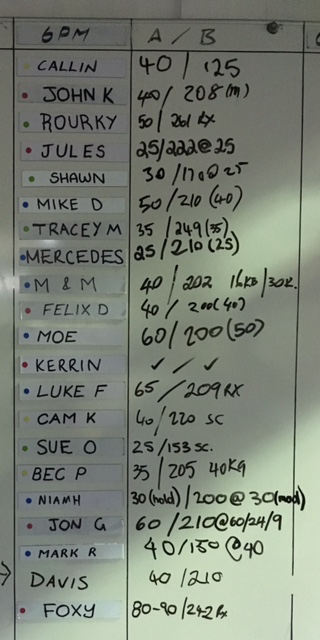 6PM A / B
CALLIN 40 / 125
JOHN K 40 / 208 (m)
ROURKY 50 / 261 RX
JULES 25/222@25
SHAWN 30 / 170@25
MIKE D 50/210 (40)
TRACEY M 35 / 249 (35)
MERCEDES 25/210 (25)
M & M 40 / 202 16KB/30K.
FELIX D 40 / 200(40)
MOE 60/200(50)
KERRIN ✓ ✓ ✓
LUKE F 65 / 209 RX
CAM K 40/220 SC
SUE O 25/153 SC.
BEC P 35 / 205 40KG
NIAMH 30(hold) /200@30(mod)
JON G 60 /210@60/24/9
MARK R 40/150 @40
DAVIS 40/210
FOXY 80-90/242 Rx